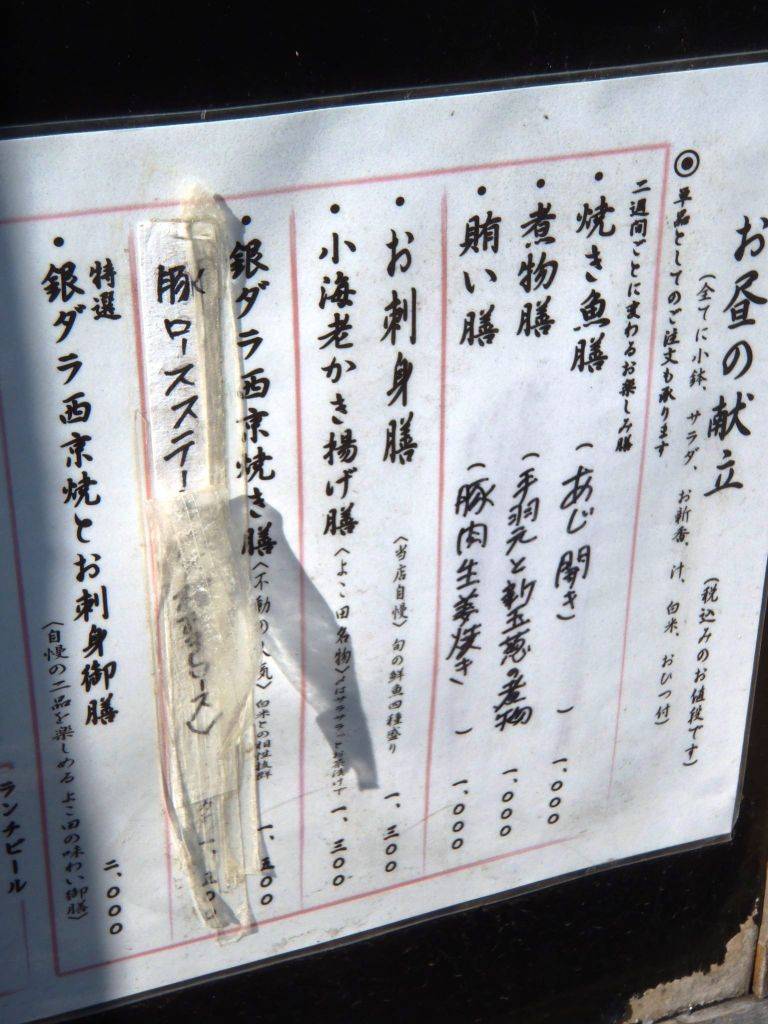 お昼の献立
(全てに小鉢、サラダ、お新香、汁、白米、おひつ付)
(税込みのお値段です)
◉単品としてのご注文も承ります
二週間ごとに変わるお楽しみ膳
・焼き魚膳 (あじ開き) 一、〇〇〇
・煮物膳 (手羽元と新玉葱の煮物) 一、〇〇〇
・賄い膳 (豚肉生姜焼き) 一、〇〇〇
・お刺身膳 〈当店自慢〉旬の鮮魚四種盛り 一、三〇〇
・小海老かき揚げ膳 〈よこ田名物〉〆はサラサラっとお茶漬けで 一、三〇〇
・銀ダラ西京焼き膳 〈不動の人気〉白米との相性抜群 一、五〇〇
豚ロースステー ロース〉
特選
・銀ダラ西京焼とお刺身御膳 二、〇〇〇
〈自慢の二品を楽しめる よこ田の味わい御膳〉
ランチビール